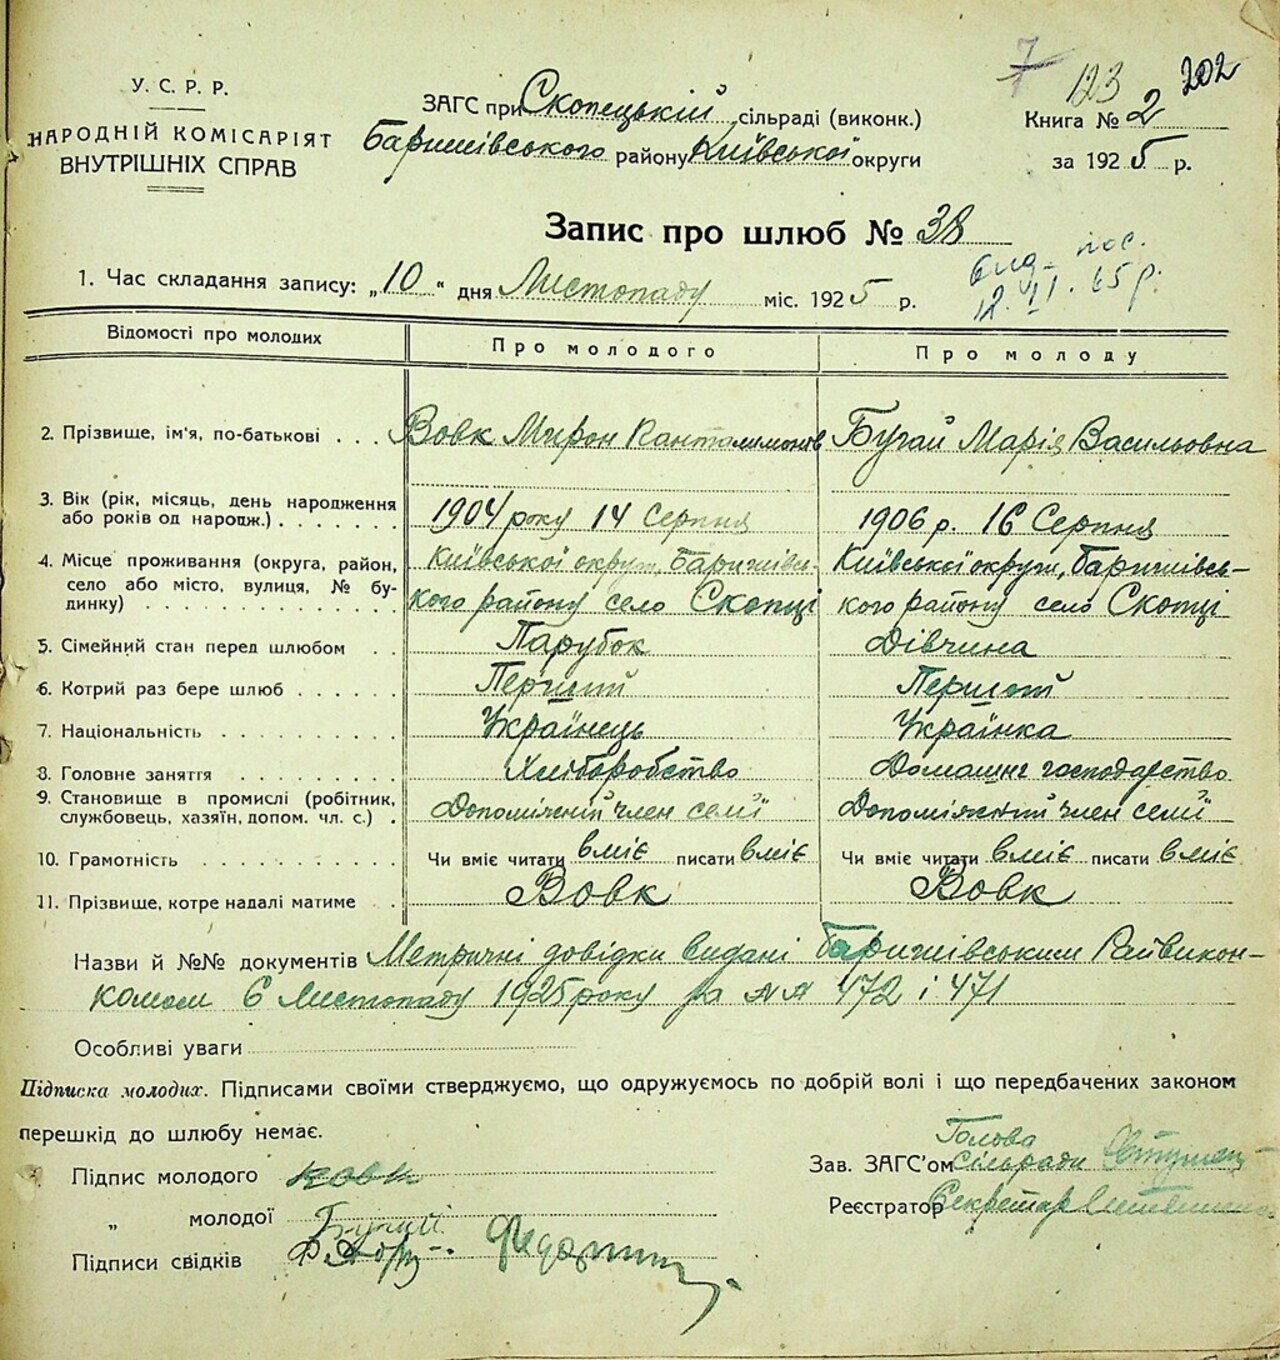 7 123 202
У. С. Р. Р.
НАРОДНІЙ КОМІСАРІЯТ
ВНУТРІШНІХ СПРАВ
ЗАГС при Скопецькій сільраді (виконк.)
Баришівського району Київської округи
Книга № 2
за 1925 р.
Запис про шлюб № 38
1. Час складання запису: „10“ дня Листопаду міс. 1925 р.
вид. пос.
12. VI. 65 р.
Відомості про молодих Про молодого Про молоду
2. Прізвище, ім'я, по-батькові . . . Вовк Мирон Бугай Марія Васильовна
3. Вік (рік, місяць, день народження
або років од народж.) . . . . . . . 1904 року 14 Серпня 1906 р. 16 Серпня
4. Місце проживання (округа, район, Київської округи, Баришівсь- Київської округи, Баришівсь-
село або місто, вулиця, № бу-
динку) . . . . . . . . . . . . . кого району село Скопці кого району село Скопці
5. Сімейний стан перед шлюбом . . Парубок Дівчина
6. Котрий раз бере шлюб . . . . . . Перший Перший
7. Національність . . . . . . . . . Українець Українка
8. Головне заняття . . . . . . . . Хліборобство Домашнє господарство
9. Становище в промислі (робітник,
службовець, хазяїн, допом. чл. с.) . Допоміжний член семї Допоміжний член семї
10. Грамотність . . . . . . . . . . Чи вміє читати вміє писати вміє Чи вміє читати вміє писати вміє
11. Прізвище, котре надалі матиме . Вовк Вовк
Назви й №№ документів Метричні довідки видані Баришівським Райвикон-
комом 6 Листопаду 1925 року за №№ 472 і 471
Особливі уваги
Підписка молодих. Підписами своїми стверджуємо, що одружуємось по добрій волі і що передбачених законом
перешкід до шлюбу немає.
Підпис молодого Вовк
„ молодої Бугай
Підписи свідків
Голова
Зав. ЗАГС'ом Сільради
Реєстратор Секретар